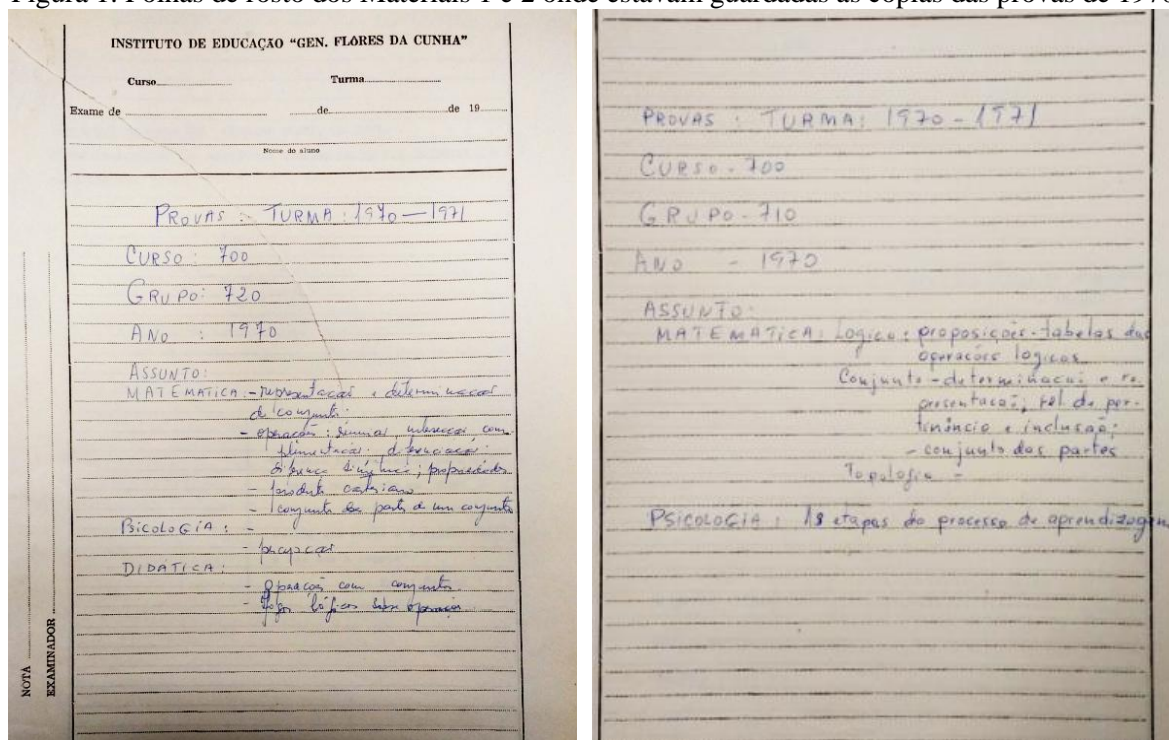 Figura 1: Folhas de rosto dos Materiais 1 e 2 onde estavam guardadas as cópias das provas de 1970
INSTITUTO DE EDUCAÇÃO "GEN. FLÔRES DA CUNHA"
Curso Turma
Exame de de de 19
Nome do aluno
PROVAS : TURMA : 1970 — 1971
CURSO : 700
GRUPO : 720
ANO : 1970
ASSUNTO :
MATEMATICA : - representação e determinação
de conjunto.
- operações : reunião, interseção com
plementação;
diferença simétrica ; propriedades
- produto cartesiano
- conjunto das partes de um conjunto
PSICOLOGIA : -
- percepção
DIDATICA :
- Operações com conjuntos
- Jogos lógicos sobre operações
NOTA
EXAMINADOR
PROVAS : TURMA : 1970 - 1971
CURSO - 700
GRUPO - 710
ANO - 1970
ASSUNTO :
MATEMATICA : Logica : proposições - tabelas das
operações logicas
Conjunto - determinação e re
presentação ; rel. de per-
tinência e inclusão ;
- conjunto das partes
Topologia -
PSICOLOGIA : As etapas do processo de aprendizagem